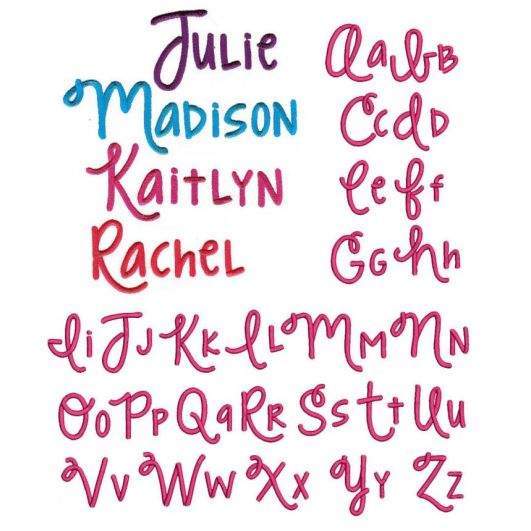 Julie
Madison
Kaitlyn
Rachel
AaBb
CcDd
EeFf
GgHh
IiJjKkLlMmNn
OoPpQqRrSsTtUu
Vv Ww Xx Yy Zz